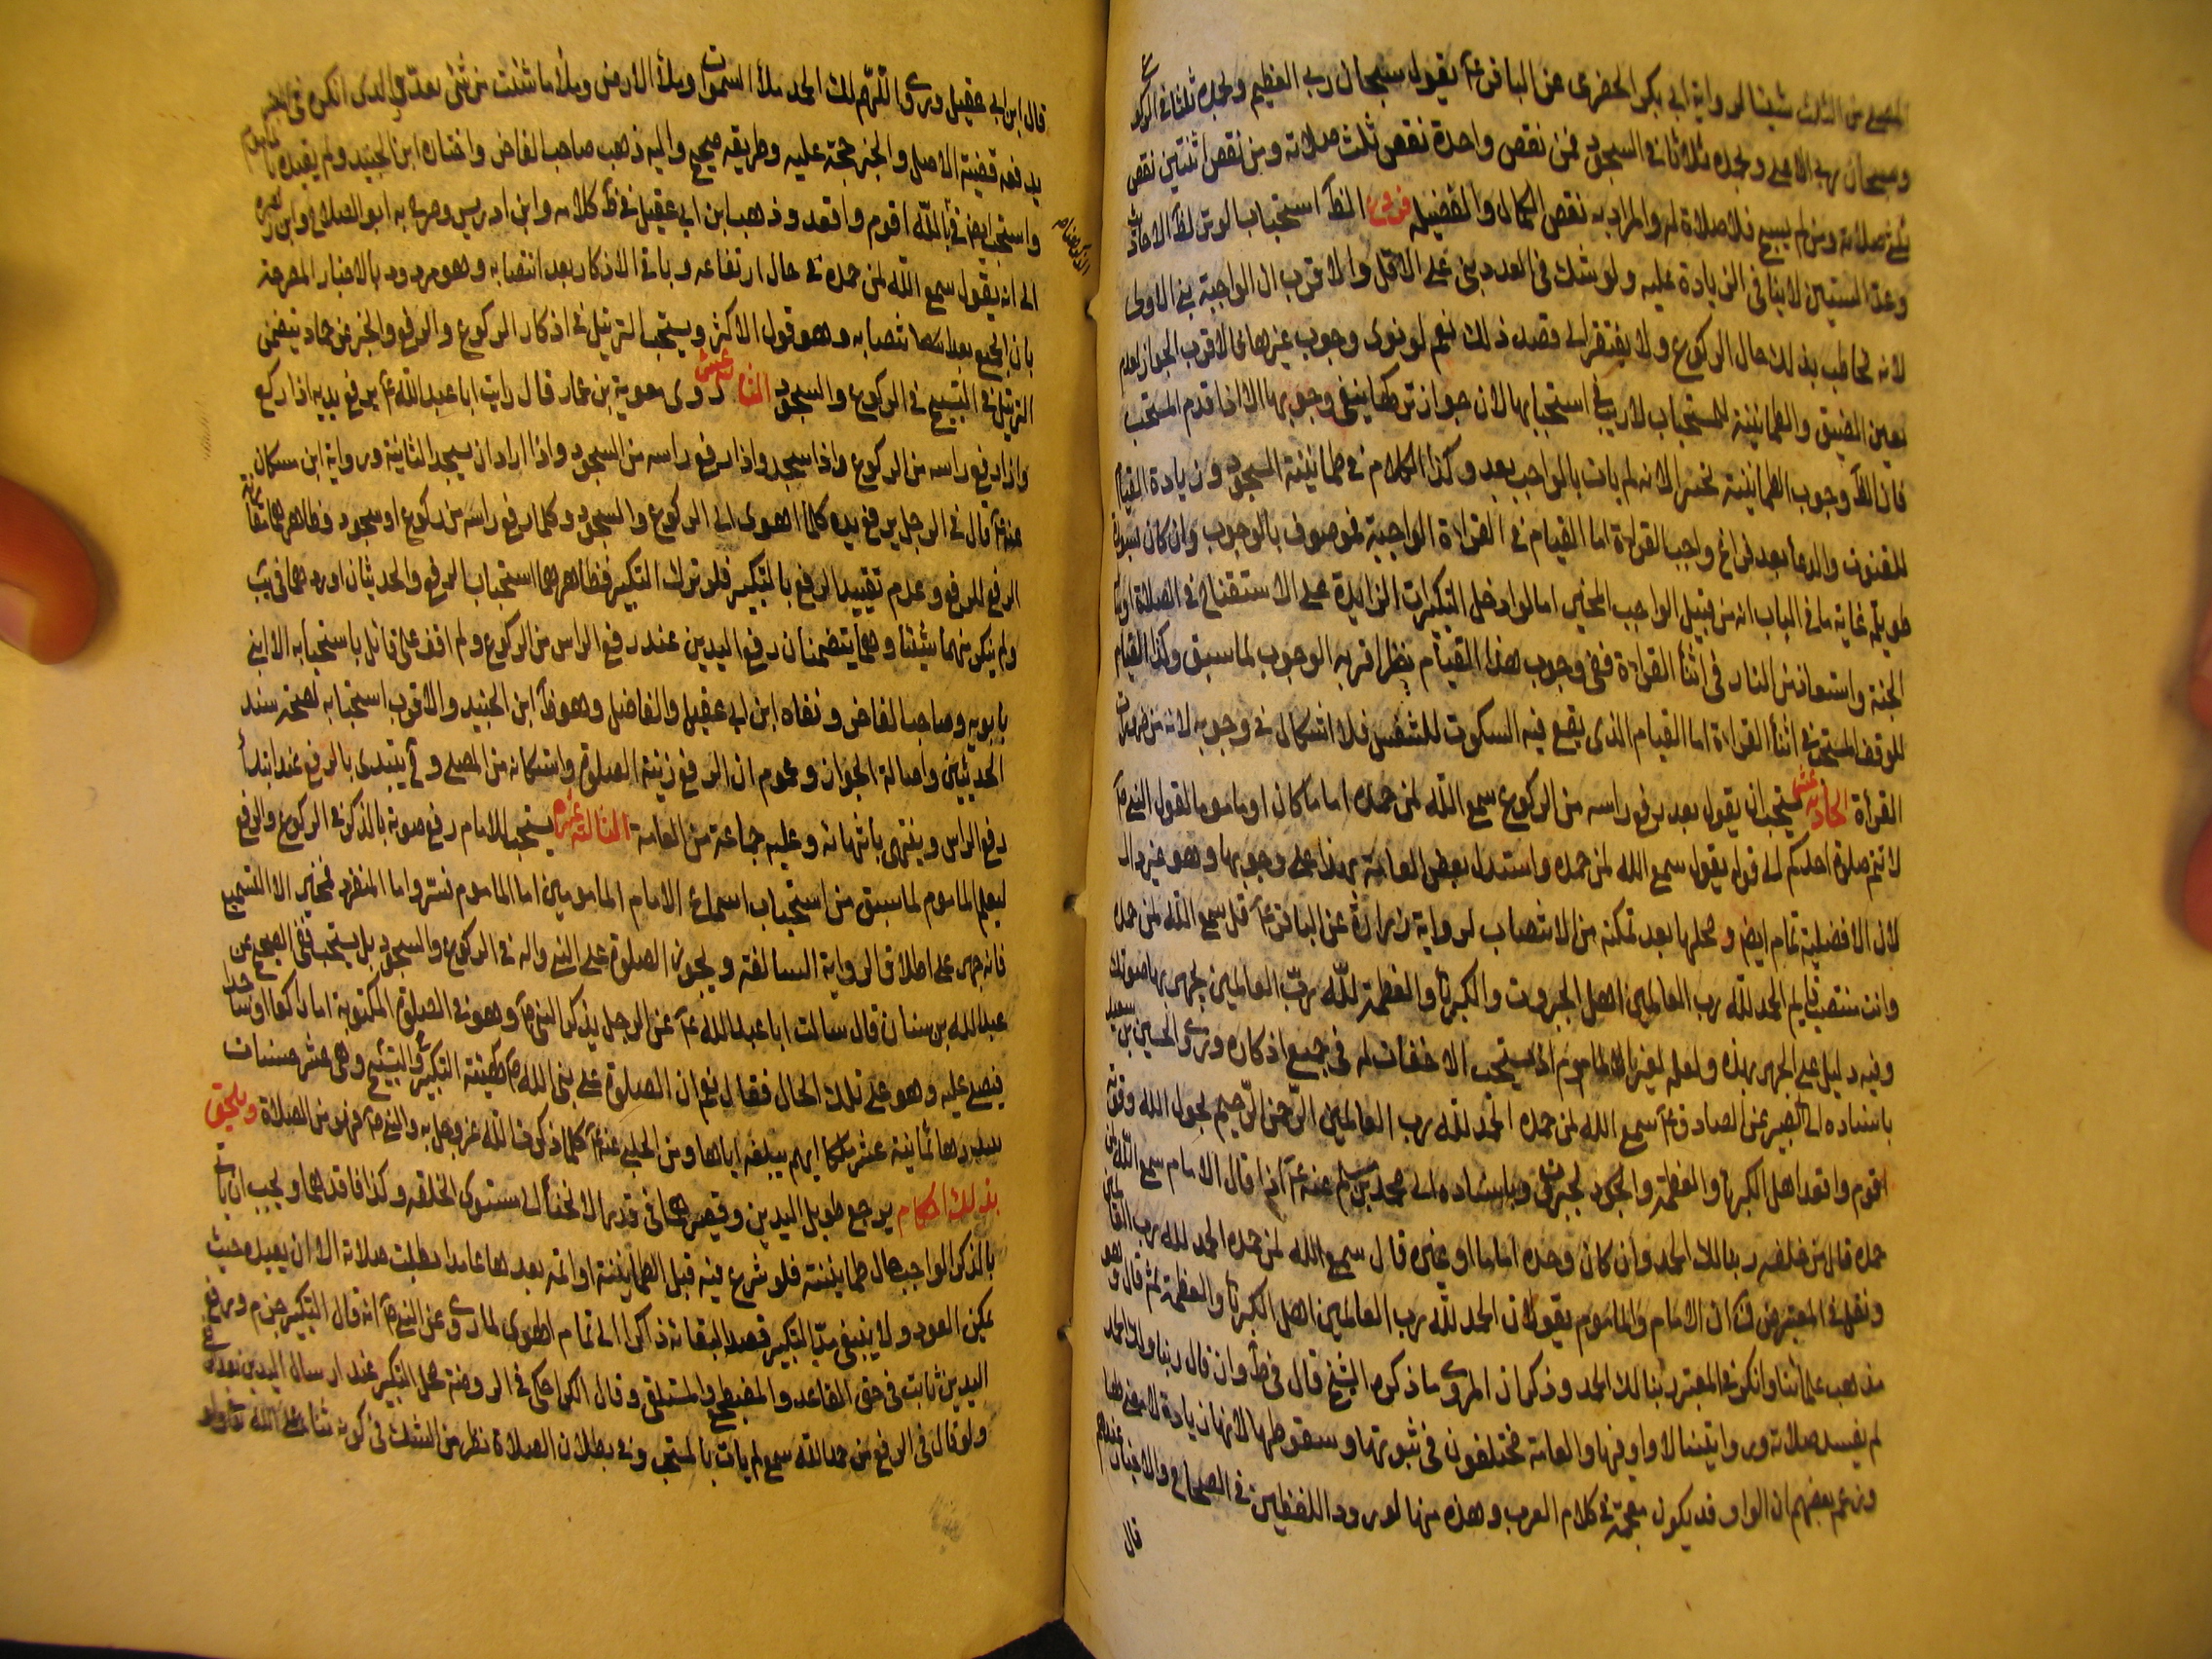 لرواية ابي بكر الحضرمى عن الباقر عۤ يقول سبحان ربى العظيم وبحمده ثلثا فى الركوع
وسبحان ربى الاعلى وبحمده ثلاثا فى السجود فمن نقص واحدة نقص ثلث صلاته ومن نقص اثنتين نقص
ثلثى صلاته ومن لم يسبح فلا صلاة له والمراد به نقص الكمال والفضيلة فروع الظۤ استحباب الوتر لظۤ الاحاديث
وعد الستين لا ينافى الزيادة عليه ولو شك فى العدد بنى على الاقل والاقرب ان الواجبة هى الاولى
لانه مخاطب بذلك حال الركوع ولا يفتقر الى قصد ذلك نعم لو نوى وجوب غيرها فالاقرب الجواز لعدم
تعين المضيق والطمانينة للمستحباب لا ريب فى استحبابها لان جواز تركها ينفى وجوبها الا اذا قدم المستحب
فان الظۤ وجوب الطمانينة تخيرا لانه لم يات بالواجب بعد وكذا الكلام فى طمانينة السجود وزيادة القيام
للقنوت والدعا بعد فراغ واجب القراءة اما القيام فى القراءة الواجبة فموصوف بالوجوب وان كان بسورة
طويلة غاية ما فى الباب انه من قبيل الواجب المخير اما لو ادخل التكبيرات الزايدة على الاستفتاح فى الصلاة او سال
الجنة واستعاذ من النار فى اثنأ القراءة ففى وجوب هذا القيام نظر اقربه الوجوب لما سبق وكذا القيام
للوقف المستحب فى اثنأ القراءة اما القيام الذى يقع فيه السكوت للتنفس فلا اشكال فى وجوبه لانه من ضرورات
القرأة الحادية عشر يستحب ان يقول بعد رفع راسه من الركوع سمع الله لمن حمده اماما كان او ماموما لقول النبى صۤ
لا تتم صلوة احدكم الى قوله يقول سمع الله لمن حمده واستدل بعض العامة بهذا على وجوبها وهو غير دال
لان الافضلية تمام ايض ومحلها بعد تمكنه من الانتصاب لرواية زرارة عن الباقر عۤ قل سمع الله لمن حمده
وانت منتصب قايم الحمد لله رب العالمين اهل الجبروت والكبريا والعظمة لله رب العالمين يجهر بها صوتك
وفيه دليل على الجهر بهذه ولعله لغير الماموم اذ يستحب الاخفات له فى جميع اذكاره وروى الحسين بن سعيد
باسناده الى ابى بصير عن الصادق عۤ سمع الله لمن حمده الحمد لله رب العالمين الرحمن الرحيم بحول الله وقوته
اقوم واقعد اهل الكبريا والعظمة والجود والجبروت وباسناده الى محمد بن مسلم عنه عۤ اذا قال الامام سمع الله لمن
حمده قال من خلفه ربنا لك الحمد وان كان وحده اماما او غيره قال سمع الله لمن حمده الحمد لله رب العالمين
ونقل فى المعتبر عن ان الامام والماموم يقولان الحمد لله رب العالمين اهل الكبريا والعظمة ثم قال وهو
مذهب علمائنا وانكر فى المعتبر ربنا لك الحمد وذكر ان المروى ما ذكره الشيخ قال فى ط وان قال ربنا ولك الحمد
لم يفسد صلاته وروايتنا لا واو فيها والعامة مختلفون فى ثبوتها وسقوطها لانها زيادة لا معنى لها
وزعم بعضهم ان الواو قد يكون مقحمة فى كلام العرب وهذه منها لورود اللفظين فى الصحاح والاخبار عندهم
قال
قال ابن ابى عقيل وروى اللهم لك الحمد ملأ السموات وملأ الارض وملأ ما شئت من شئ بعد والذى انكره فى المعتبر
يدفعه قضية الاصل والخبر حجة عليه وطريقه صحيح واليه ذهب صاحب الفاخر واختاره ابن الجنيد ولم يقيده بالماموم
واستحب ايض بالله اقوم واقعد وذهب ابن ابى عقيل فى ظۤ كلامه وابن ادريس وصرح به ابو الصلاح وابن زهرة
الى انه يقول سمع الله لمن حمده فى حال ارتفاعه وباقى الاذكار بعد انتصابه وهو مردود بالاخبار المصرحة
بان الجميع بعد انتصابه وهو قول الاكثر ويستحب الترتيل فى اذكار الركوع والرفع والخبر عن حماد يتضمن
الترتيل فى التسبيح فى الركوع والسجود الثانية عشر روى معوية بن عمار قال رايت ابا عبد الله عۤ يرفع يديه اذا ركع
واذا رفع راسه من الركوع واذا سجد واذا رفع راسه من السجود واذا اراد ان يسجد الثانية ورواية ابن مسكان
عنه عۤ قال فى الرجل يرفع يده كلما اهوى الى الركوع والسجود وكلما رفع راسه من ركوع او سجود وظاهرهما مقارنة
الرفع للرفع وعدم تقييد الرفع بالتكبير فلو ترك التكبير فظاهرهما استحباب الرفع والحديثان اوردهما فى يب
ولم ينكر منهما شيئا وهما يتضمنان رفع اليدين عند رفع الراس من الركوع ولم اقف على قائل باستحبابه الا ابنى
بابويه وصاحب الفاخر ونفاه ابن ابى عقيل والفاضل وهو ظۤ ابن الجنيد والاقرب استحبابه لصحة سند
الحديثين واصالة الجواز وعموم ان الرفع زينة الصلوة واستكانة من المصلى وح يبتدى بالرفع عند ابتدأ
رفع الراس وينتهى بانتهائه وعليه جماعة من العامة الثالثة عشرة يستحب للامام رفع صوته بالذكر فى الركوع والرفع
ليعلم الماموم لما سبق من استحباب اسماع الامام المامومين اما الماموم فيسر واما المنفرد فمخير الا التسميع
فانه جهر على اطلاق الرواية السالفة ويجوز الصلوة على النبى واله فى الركوع والسجود بل يستحب ففى الصحيح عن
عبد الله بن سنان قال سالت ابا عبد الله عۤ عن الرجل يذكر النبى صۤ وهو فى الصلوة المكتوبة اما راكعا او ساجدا
فيصلى عليه وهو على تلك الحال فقال نعم ان الصلوة على نبى الله صۤ كهيئة التكبير والتسبيح وهى عشر حسنات
يبتدرها ثمانية عشر ملكا ايهم يبلغه اياها وعن الحلبى عنه عۤ كلما ذكرت الله عز وجل به والنبى صۤ فهو من الصلاة ويلحق
بذلك احكام يرجع طويل اليدين وقصيرهما فى قدر الانحنأ الى مستوى الخلقة وكذا فاقدهما ويجب ان ياتى
بالذكر الواجب حال طمانينته فلو شرع فيه قبل الطمانينة او اتمه بعدها عامدا بطلت صلاته الا ان يعيده حيث
يمكن العود ولا ينبغى مد التكبير قصدا لبقائه ذاكرا الى تمام الهوى لما روى عن النبى صۤ انه قال التكبير جزم ورفع
اليدين ثابت فى حق القاعد والمضطجع والمستلقى وقال الكراجكى فى الروضة محل التكبير عند ارسال اليدين بعد
ولو قال فى الرفع من حمد الله سمع لم يات بالمستحب وفى بطلان الصلاة نظر من الشك فى كونه ثناء على الله